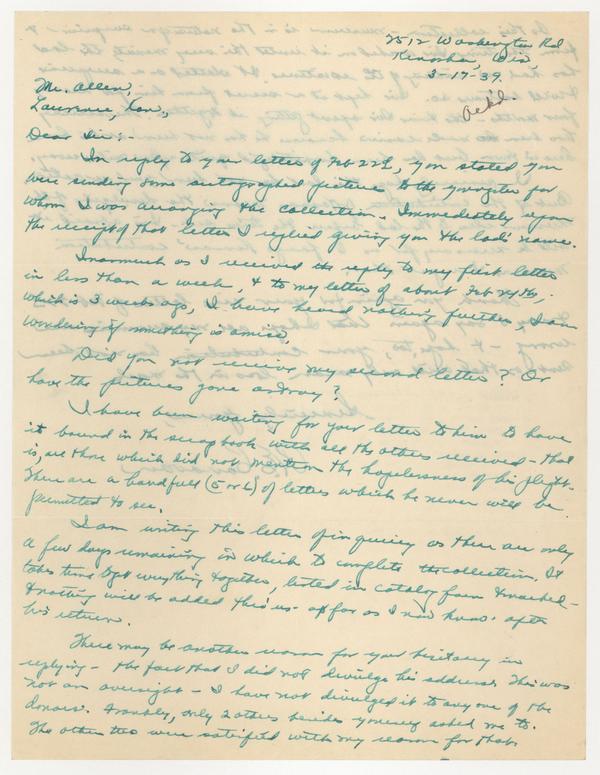 2512 Washington Rd
Kenosha, Wis,
3-17-39.
Ack'd.
Mr. Allen,
Lawrence, Kan.,
Dear Sir:-
In reply to your letter of Feb 22d, you stated you
were sending some autographed pictures to the youngster for
whom I was arranging the collection. Immediately upon
the receipt of that letter I replied giving you the lad's name.
Inasmuch as I received the reply to my first letter
in less than a week, & to my letter of about Feb 24th,
which is 3 weeks ago, I have heard nothing further, I am
wondering if something is amiss.
Did you not receive my second letter? Or
have the pictures gone astray?
I have been waiting for your letter to him to have
it bound in the scrapbook with all the others received - that
is, all those which did not mention the hopelessness of his plight.
There are a handfull (5 or 6) of letters which he never will be
permitted to see.
I am writing this letter of inquiry as there are only
a few days remaining in which to complete the collection. It
takes time to get everything together, listed in catalog form &
& nothing will be added thus - as far as I now know - after
his return.
There may be another reason for your hesitancy in
replying - the fact that I did not divulge his address. This was
not an oversight - I have not divulged it to any one of the
donors. Frankly, only 2 others besides yourself asked me to.
The other two were satisfied with my reason for that.